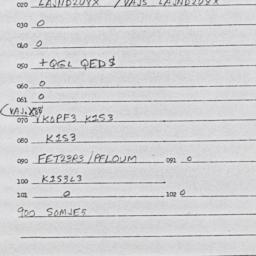 020 LAJND2U8X / VAJS LAJND2U8X
030 0
040 0
050 +QGL QED$
060 0
061 0
070 1KOPF3 K1S3
080 K1S3
090 FET2SR3/PFLOUM 091 0
100 K1S3L3
101 0 102 0
900 SOMJES